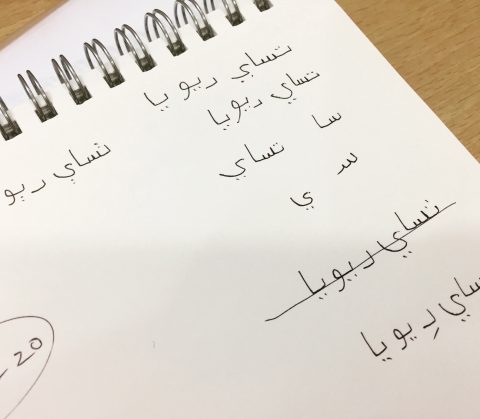 تساي ريويا
تساي ريويا
سا
تساي
تساي ريو
سر
ي
تساي ريويا
ساي رِيويا
20